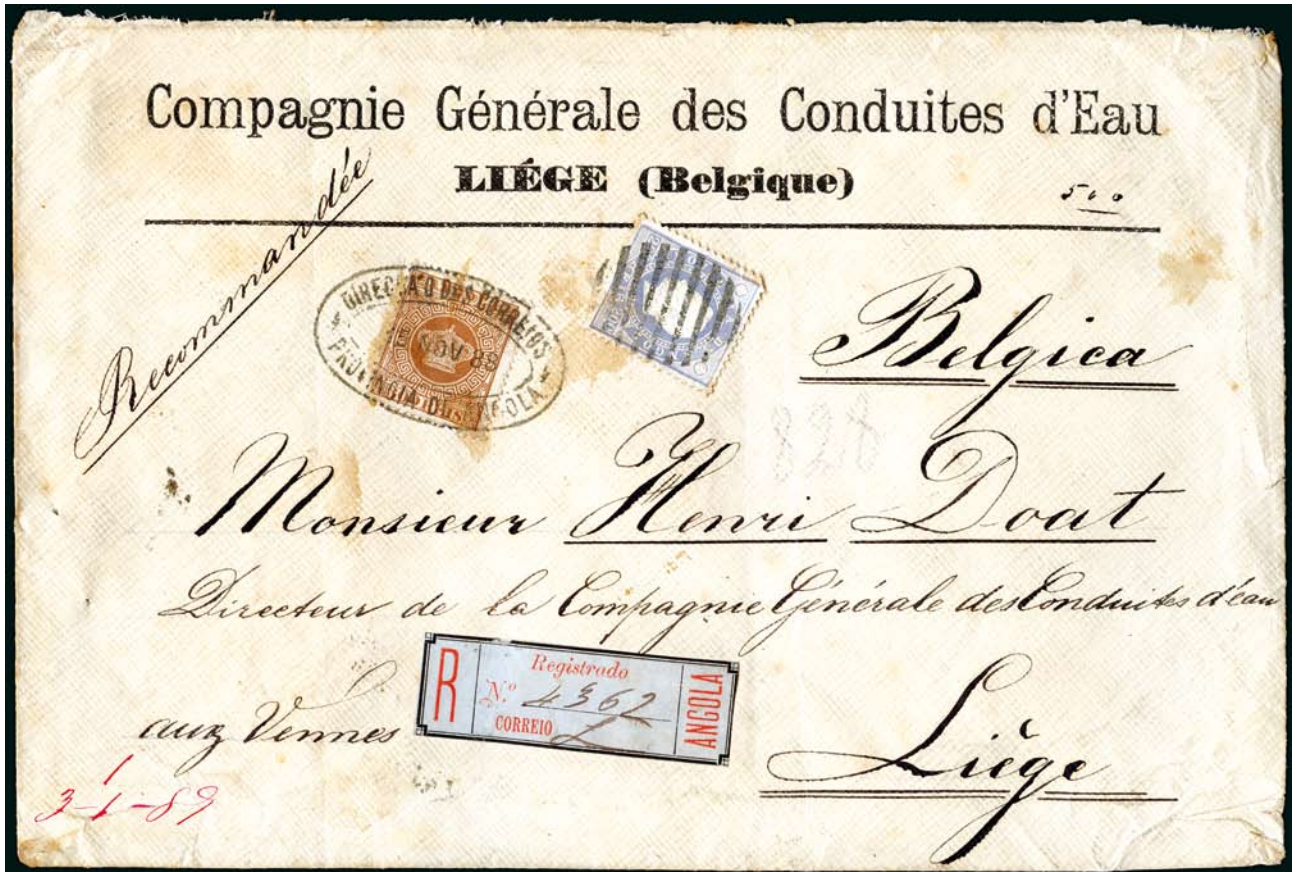 Compagnie Générale des Conduites d'Eau
LIÉGE (Belgique)
500
Recommandée
DIRECÇÃO DES CORREIOS
PROVINCIA DE ANGOLA
Belgica
Monsieur Henri Doat
Directeur de la Compagnie Générale des Conduites d'eau
R
Registrado
N.º 4362
CORREIO L
ANGOLA
aux Vennes
Liège
3-1-89